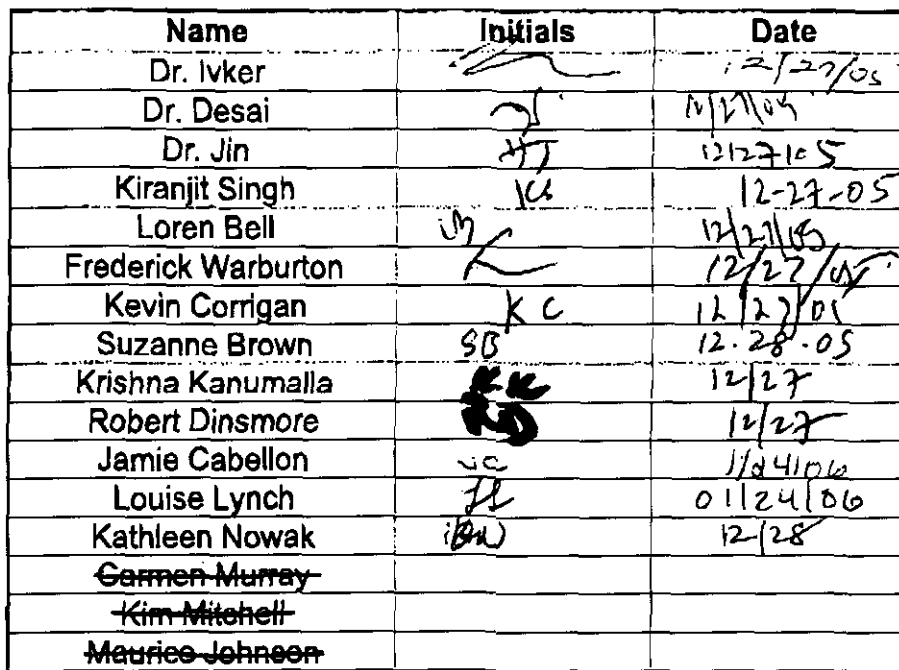 Name Initials Date
Dr. Ivker 12/27/05
Dr. Desai 12/27/05
Dr. Jin HJ 12/27/05
Kiranjit Singh KS 12-27-05
Loren Bell 12/27/05
Frederick Warburton 12/27/05
Kevin Corrigan KC 12/27/05
Suzanne Brown SB 12.28.05
Krishna Kanumalla KK 12/27
Robert Dinsmore RD 12/27
Jamie Cabellon JC
Louise Lynch LL 01/24/06
Kathleen Nowak 12/28
Carmen Murray
Kim Mitchell
Maurice Johnson